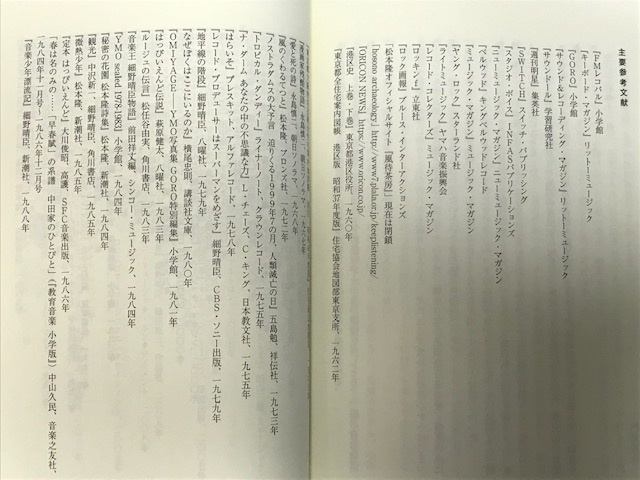 主要参考文献
『FMレコパル』小学館
『キーボード・マガジン』リットーミュージック
『GORO』小学館
『サウンド＆レコーディング・マガジン』リットーミュージック
『サウンドール』学習研究社
『週刊明星』集英社
『SWITCH』スイッチ・パブリッシング
『スタジオ・ボイス』INFASパブリケーションズ
『ニューミュージック・マガジン』ニューミュージック・マガジン
『ベルウッド』キングベルウッドレコード
『ミュージック・マガジン』ミュージック・マガジン
『ヤング・ロック』スターランド社
『ライトミュージック』ヤマハ音楽振興会
『レコード・コレクターズ』ミュージック・マガジン
『ロッキンf』立東社
『ロック画報』ブルース・インターアクションズ
「松本隆オフィシャルサイト「風待茶房」」現在は閉鎖
「hosono archaeology」http://www7.plala.or.jp/keeplistening/
「ORICON NEWS」https://www.oricon.co.jp/
『港区史 上巻・下巻』東京都港区役所、一九六〇年
『東京都全住宅案内図帳 港区版 昭和37年度版』住宅協会地図部東京支所、一九六二年
『愛と死の詩』
『風のくわるてつと』松本隆、ブロンズ社、一九七二年
『ノストラダムスの大予言 迫りくる1999年7の月、人類滅亡の日』五島勉、祥伝社、一九七三年
『トロピカル・ダンディー』ライナーノート、クラウンレコード、一九七五年
『ザ・ダーム あなたの中の不思議な力』L・チェーズ、C・キング、日本教文社、一九七五年
『はらいそ』プレスキット、アルファレコード、一九七八年
『レコード・プロデューサーはスーパーマンをめざす』細野晴臣、CBS・ソニー出版、一九七九年
『地平線の階段』細野晴臣、八曜社、一九七九年
『なぜぼくはここにいるのか』横尾忠則、講談社文庫、一九八〇年
『OMIYAGE――YMO写真集 GORO特別編集』小学館、一九八一年
『はっぴいえんど伝説』萩原健太、八曜社、一九八三年
『ルージュの伝言』松任谷由実、角川書店、一九八三年
『音楽王 細野晴臣物語』前田祥丈編、シンコー・ミュージック、一九八四年
『YMO sealed 1978-1983』小学館、一九八四年
『秘密の花園 松本隆詩集』松本隆、新潮社、一九八四年
『観光』中沢新一、細野晴臣、角川書店、一九八五年
『微熱少年』松本隆、新潮社、一九八五年
『定本 はっぴいえんど』大川俊昭、高護、SFC音楽出版、一九八六年
「春は名のみの……「早春賦」の系譜 中田家のひとびと」（『教育音楽 小学版』）中山久民、音楽之友社、
一九八四年一月号～一九八六年十二月号
『音楽少年漂流記』細野晴臣、新潮社、一九八八年